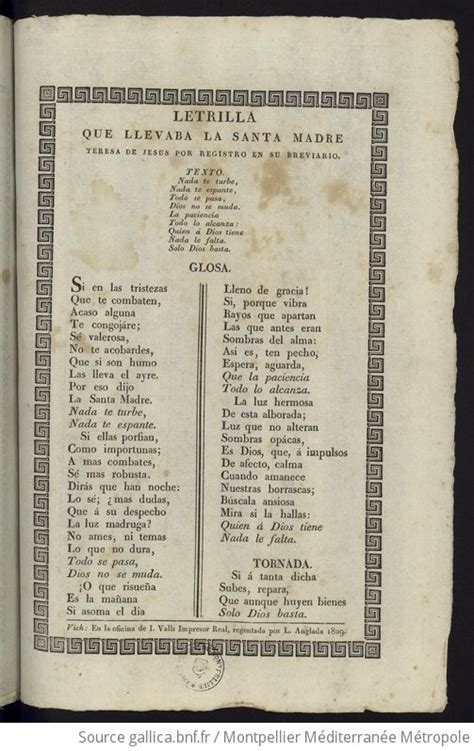 LETRILLA
QUE LLEVABA LA SANTA MADRE
TERESA DE JESUS POR REGISTRO EN SU BREVIARIO.
TEXTO.
Nada te turbe,
Nada te espante,
Todo se pasa,
Dios no se muda.
La paciencia
Todo lo alcanza:
Quien á Dios tiene
Nada le falta.
Solo Dios basta.
GLOSA.
Si en las tristezas
Que te combaten,
Acaso alguna
Te congojáre;
Sé valerosa,
No te acobardes,
Que si son humo
Las lleva el ayre.
Por eso dijo
La Santa Madre.
Nada te turbe,
Nada te espante.
Si ellas porfian,
Como importunas;
A mas combates,
Sé mas robusta.
Dirás que han noche:
Lo sé; ¿mas dudas,
Que á su despecho
La luz madruga?
No ames, ni temas
Lo que no dura,
Todo se pasa,
Dios no se muda.
¡O que risueña
Es la mañana
Si asoma el dia
Lleno de gracia!
Si, porque vibra
Rayos que apartan
Las que antes eran
Sombras del alma:
Asi es, ten pecho,
Espera, aguarda,
Que la paciencia
Todo lo alcanza.
La luz hermosa
De esta alborada;
Luz que no alteran
Sombras opácas,
Es Dios, que, á impulsos
De afecto, calma
Cuando amanece
Nuestras borrascas;
Búscala ansiosa
Mira si la hallas:
Quien á Dios tiene
Nada le falta.
TORNADA.
Si á tanta dicha
Subes, repara,
Que aunque huyen bienes
Solo Dios basta.
Vich: En la oficina de I. Valls Impresor Real, regentada por L. Anglada 1829.
Source gallica.bnf.fr / Montpellier Méditerranée Métropole